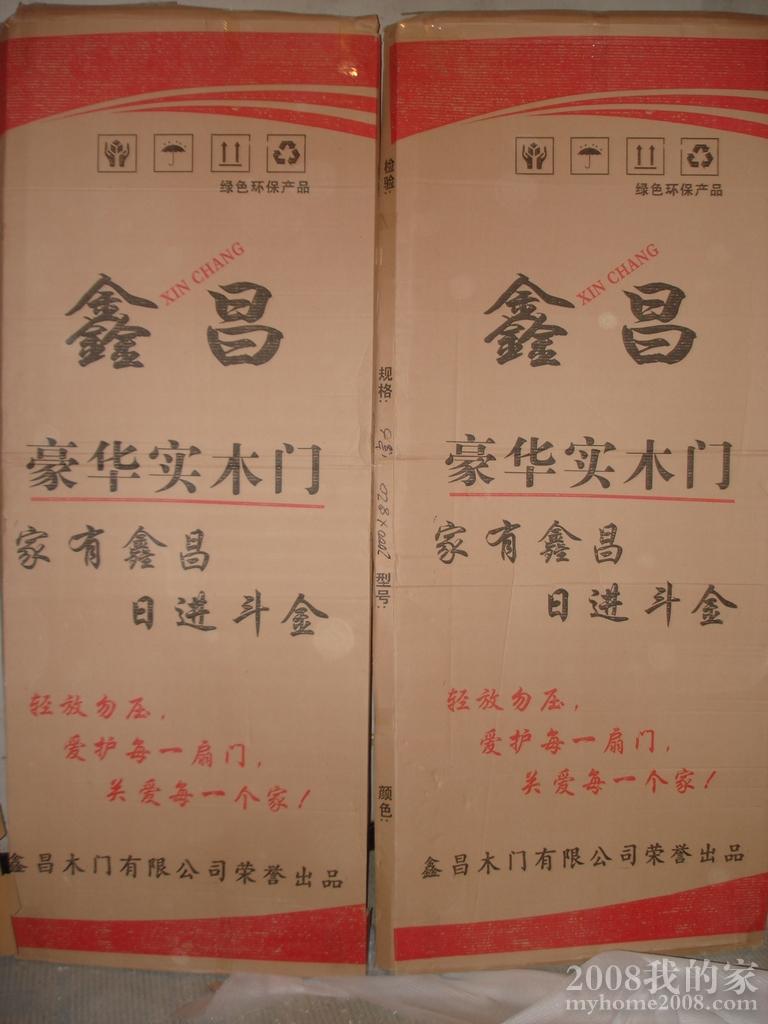 绿色环保产品
XIN CHANG
鑫昌
豪华实木门
家有鑫昌
日进斗金
轻放勿压，
爱护每一扇门，
关爱每一个家！
鑫昌木门有限公司荣誉出品
检验：
规格：
型号：
颜色：
绿色环保产品
XIN CHANG
鑫昌
豪华实木门
家有鑫昌
日进斗金
轻放勿压，
爱护每一扇门，
关爱每一个家！
鑫昌木门有限公司荣誉出品
2008我的家
myhome2008.com